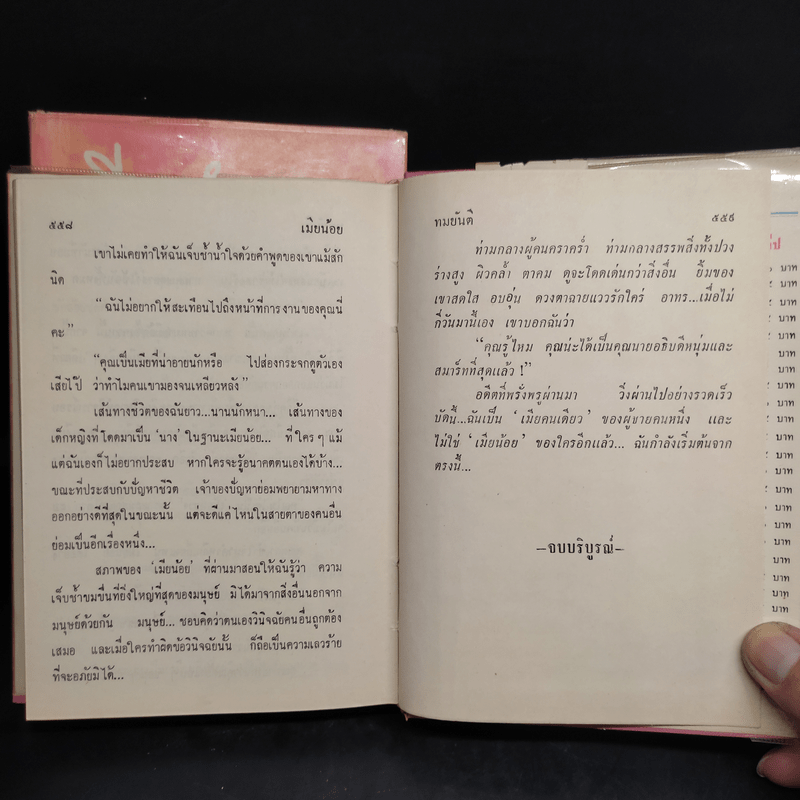 ๕๕๘
เมียน้อย
เขาไม่เคยทำให้ฉันเจ็บช้ำน้ำใจด้วยคำพูดของเขาแม้สัก
นิด
“ฉันไม่อยากให้สะเทือนไปถึงหน้าที่การงานของคุณนี่
คะ”
“คุณเป็นเมียที่น่าอายนักหรือ ไปส่องกระจกดูตัวเอง
เสียไป๊ ว่าทำไมคนเขามองจนเหลียวหลัง”
เส้นทางชีวิตของฉันยาว...นานนักหนา... เส้นทางของ
เด็กหญิงที่โดดมาเป็น ‘นาง’ ในฐานะเมียน้อย... ที่ใครๆ แม้
แต่ฉันเองก็ไม่อยากประสบ หากใครจะรู้อนาคตตนเองได้บ้าง...
ขณะที่ประสบกับปัญหาชีวิต เจ้าของปัญหาย่อมพยายามหาทาง
ออกอย่างดีที่สุดในขณะนั้น แต่จะดีแค่ไหนในสายตาของคนอื่น
ย่อมเป็นอีกเรื่องหนึ่ง...
สภาพของ ‘เมียน้อย’ ที่ผ่านมาสอนให้ฉันรู้ว่า ความ
เจ็บช้ำขมขื่นที่ยิ่งใหญ่ที่สุดของมนุษย์ มิได้มาจากสิ่งอื่นนอกจาก
มนุษย์ด้วยกัน มนุษย์... ชอบคิดว่าตนเองวินิจฉัยคนอื่นถูกต้อง
เสมอ และเมื่อใครทำผิดข้อวินิจฉัยนั้น ก็ถือเป็นความเลวร้าย
ที่จะอภัยมิได้...
ทมยันตี
๕๕๙
ท่ามกลางผู้คนคราคร่ำ ท่ามกลางสรรพสิ่งทั้งปวง
ร่างสูง ผิวคล้ำ ตาคม ดูจะโดดเด่นกว่าสิ่งอื่น ยิ้มของ
เขาสดใส อบอุ่น ดวงตาฉายแววรักใคร่ อาทร...เมื่อไม่
กี่วันมานี้เอง เขาบอกฉันว่า
“คุณรู้ไหม คุณน่ะได้เป็นคุณนายอธิบดีหนุ่มและ
สมาร์ทที่สุดแล้ว !”
อดีตที่พรั่งพรูผ่านมา วิ่งผ่านไปอย่างรวดเร็ว
บัดนี้...ฉันเป็น ‘เมียคนเดียว’ ของผู้ชายคนหนึ่ง และ
ไม่ใช่ ‘เมียน้อย’ ของใครอีกแล้ว... ฉันกำลังเริ่มต้นจาก
ตรงนี้...
—จบบริบูรณ์—
บาท
บาท
บาท
บาท
บาท
บาท
บาท
บาท
บาท
บาท
บาท
บาท
บาท
บาท
บาท
บาท
บาท
บาท
บาท
บาท
บาท